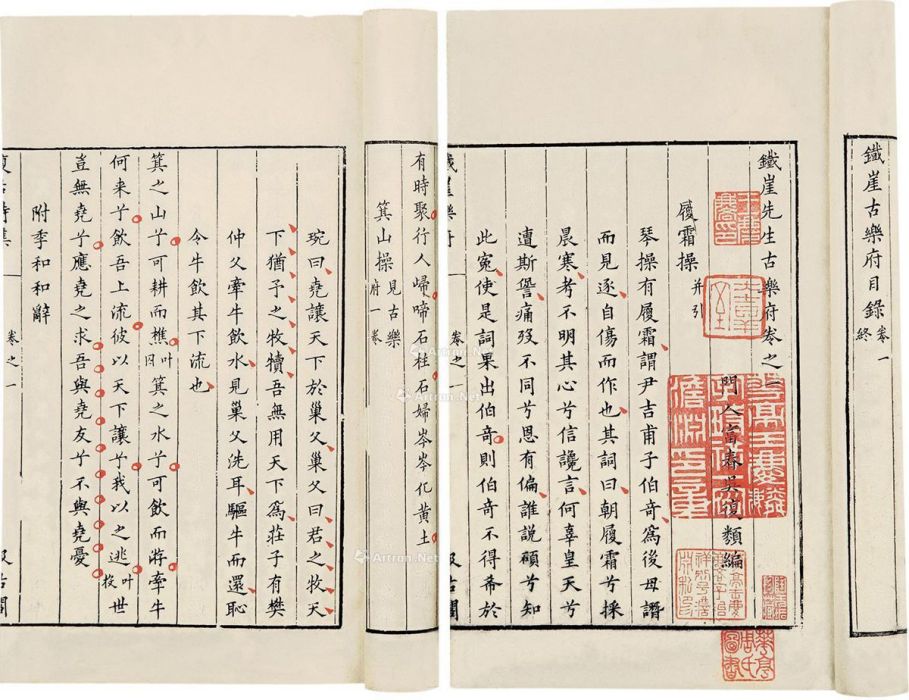 鐵崖古樂府目錄卷一終
鐵崖先生古樂府卷之一
門人富春吳復類編
履霜操并引
琴操有履霜謂尹吉甫子伯奇為後母譖
而見逐自傷而作也其詞曰朝履霜兮採
晨寒考不明其心兮信讒言何辜皇天兮
遭斯愆痛歿不同兮思有偏誰說顧兮知
此冤使是詞果出伯奇則伯奇不得希於
卷之一
有時聚行人歸啼石柱石婦岑岑化黃土
箕山操見古樂府一卷
琬曰堯讓天下於巢父巢父曰君之牧天
下猶予之牧犢吾無用天下為莊子有樊
仲父牽牛飲水見巢父洗耳驅牛而還恥
令牛飲其下流也
箕之山兮可耕而樵叶囚箕之水兮可飲而游牽牛
何来兮飲吾上流彼以天下讓兮我以之逃叶投世
豈無堯兮應堯之求吾與堯友兮不與堯憂
附李和和辭
卷之一
Artron.Net
Artron.Net
Artron.Net